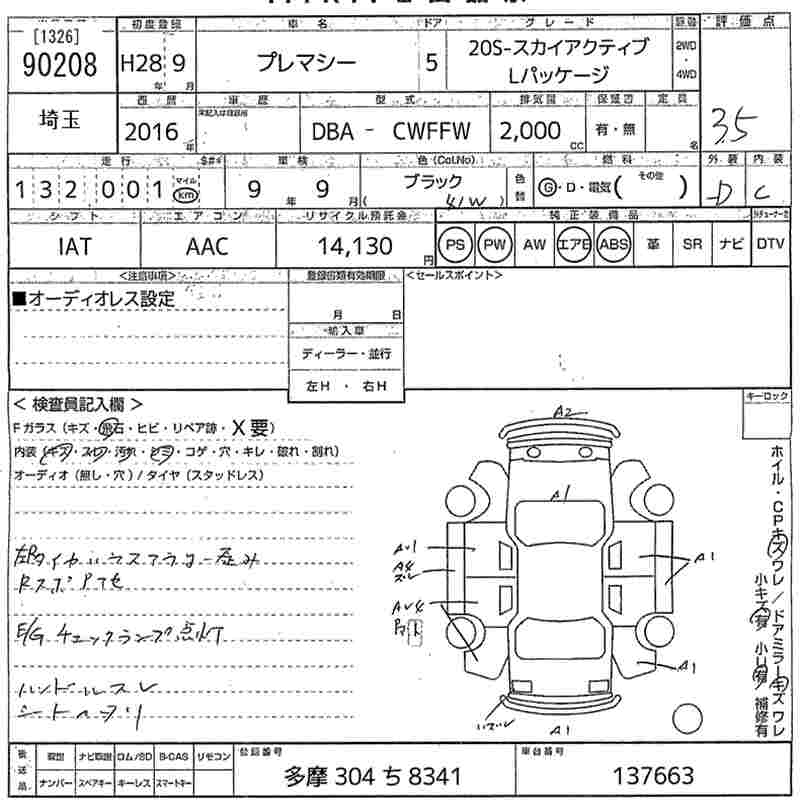 [1326]
90208
初度登録 車名 ドア グレード 評価点
H28 9 プレマシー 5 20S-スカイアクティブ
Lパッケージ
2WD
・
4WD
年 月
埼玉
西暦 車歴 型式 排気量 定員
2016 年 DBA - CWFFW 2,000 CC 有・無 名
3.5
走行 車検 色(Col.No) 燃料 外装 内装
132001 マイル km 9 年 9 月 ブラック
( 41W ) 色替 G・D・電気( その他 ) D C
シフト エアコン リサイクル預託金 純正装備品
IAT AAC 14,130 円 PS PW AW エアB ABS 革 SR ナビ DTV
<注意事項> 登録書類有効期限 <セールスポイント>
■オーディオレス設定
月 日
輸入車
ディーラー・並行
左H ・ 右H
< 検査員記入欄 >
キーロック
Fガラス (キズ・飛石・ヒビ・リペア跡・X要)
内装 (キズ・スレ・汚れ・シミ・コゲ・穴・キレ・破れ・割れ)
オーディオ (無し・穴) / タイヤ (スタッドレス)
E/Gチェックランプ点灯
ハンドルスレ
シートヘタリ
A2
A1
AV1
A4
ズレ
AV4
A1
A1
A1
ホイル・CPキズワレ/ドアミラーキズワレ
小キズ有 小U有 補修有
ナビ取説 ロム/SD B-CAS リモコン 登録番号 車台番号
ナンバー スペアキー キーレス スマートキー
多摩 304 ち 8341 137663